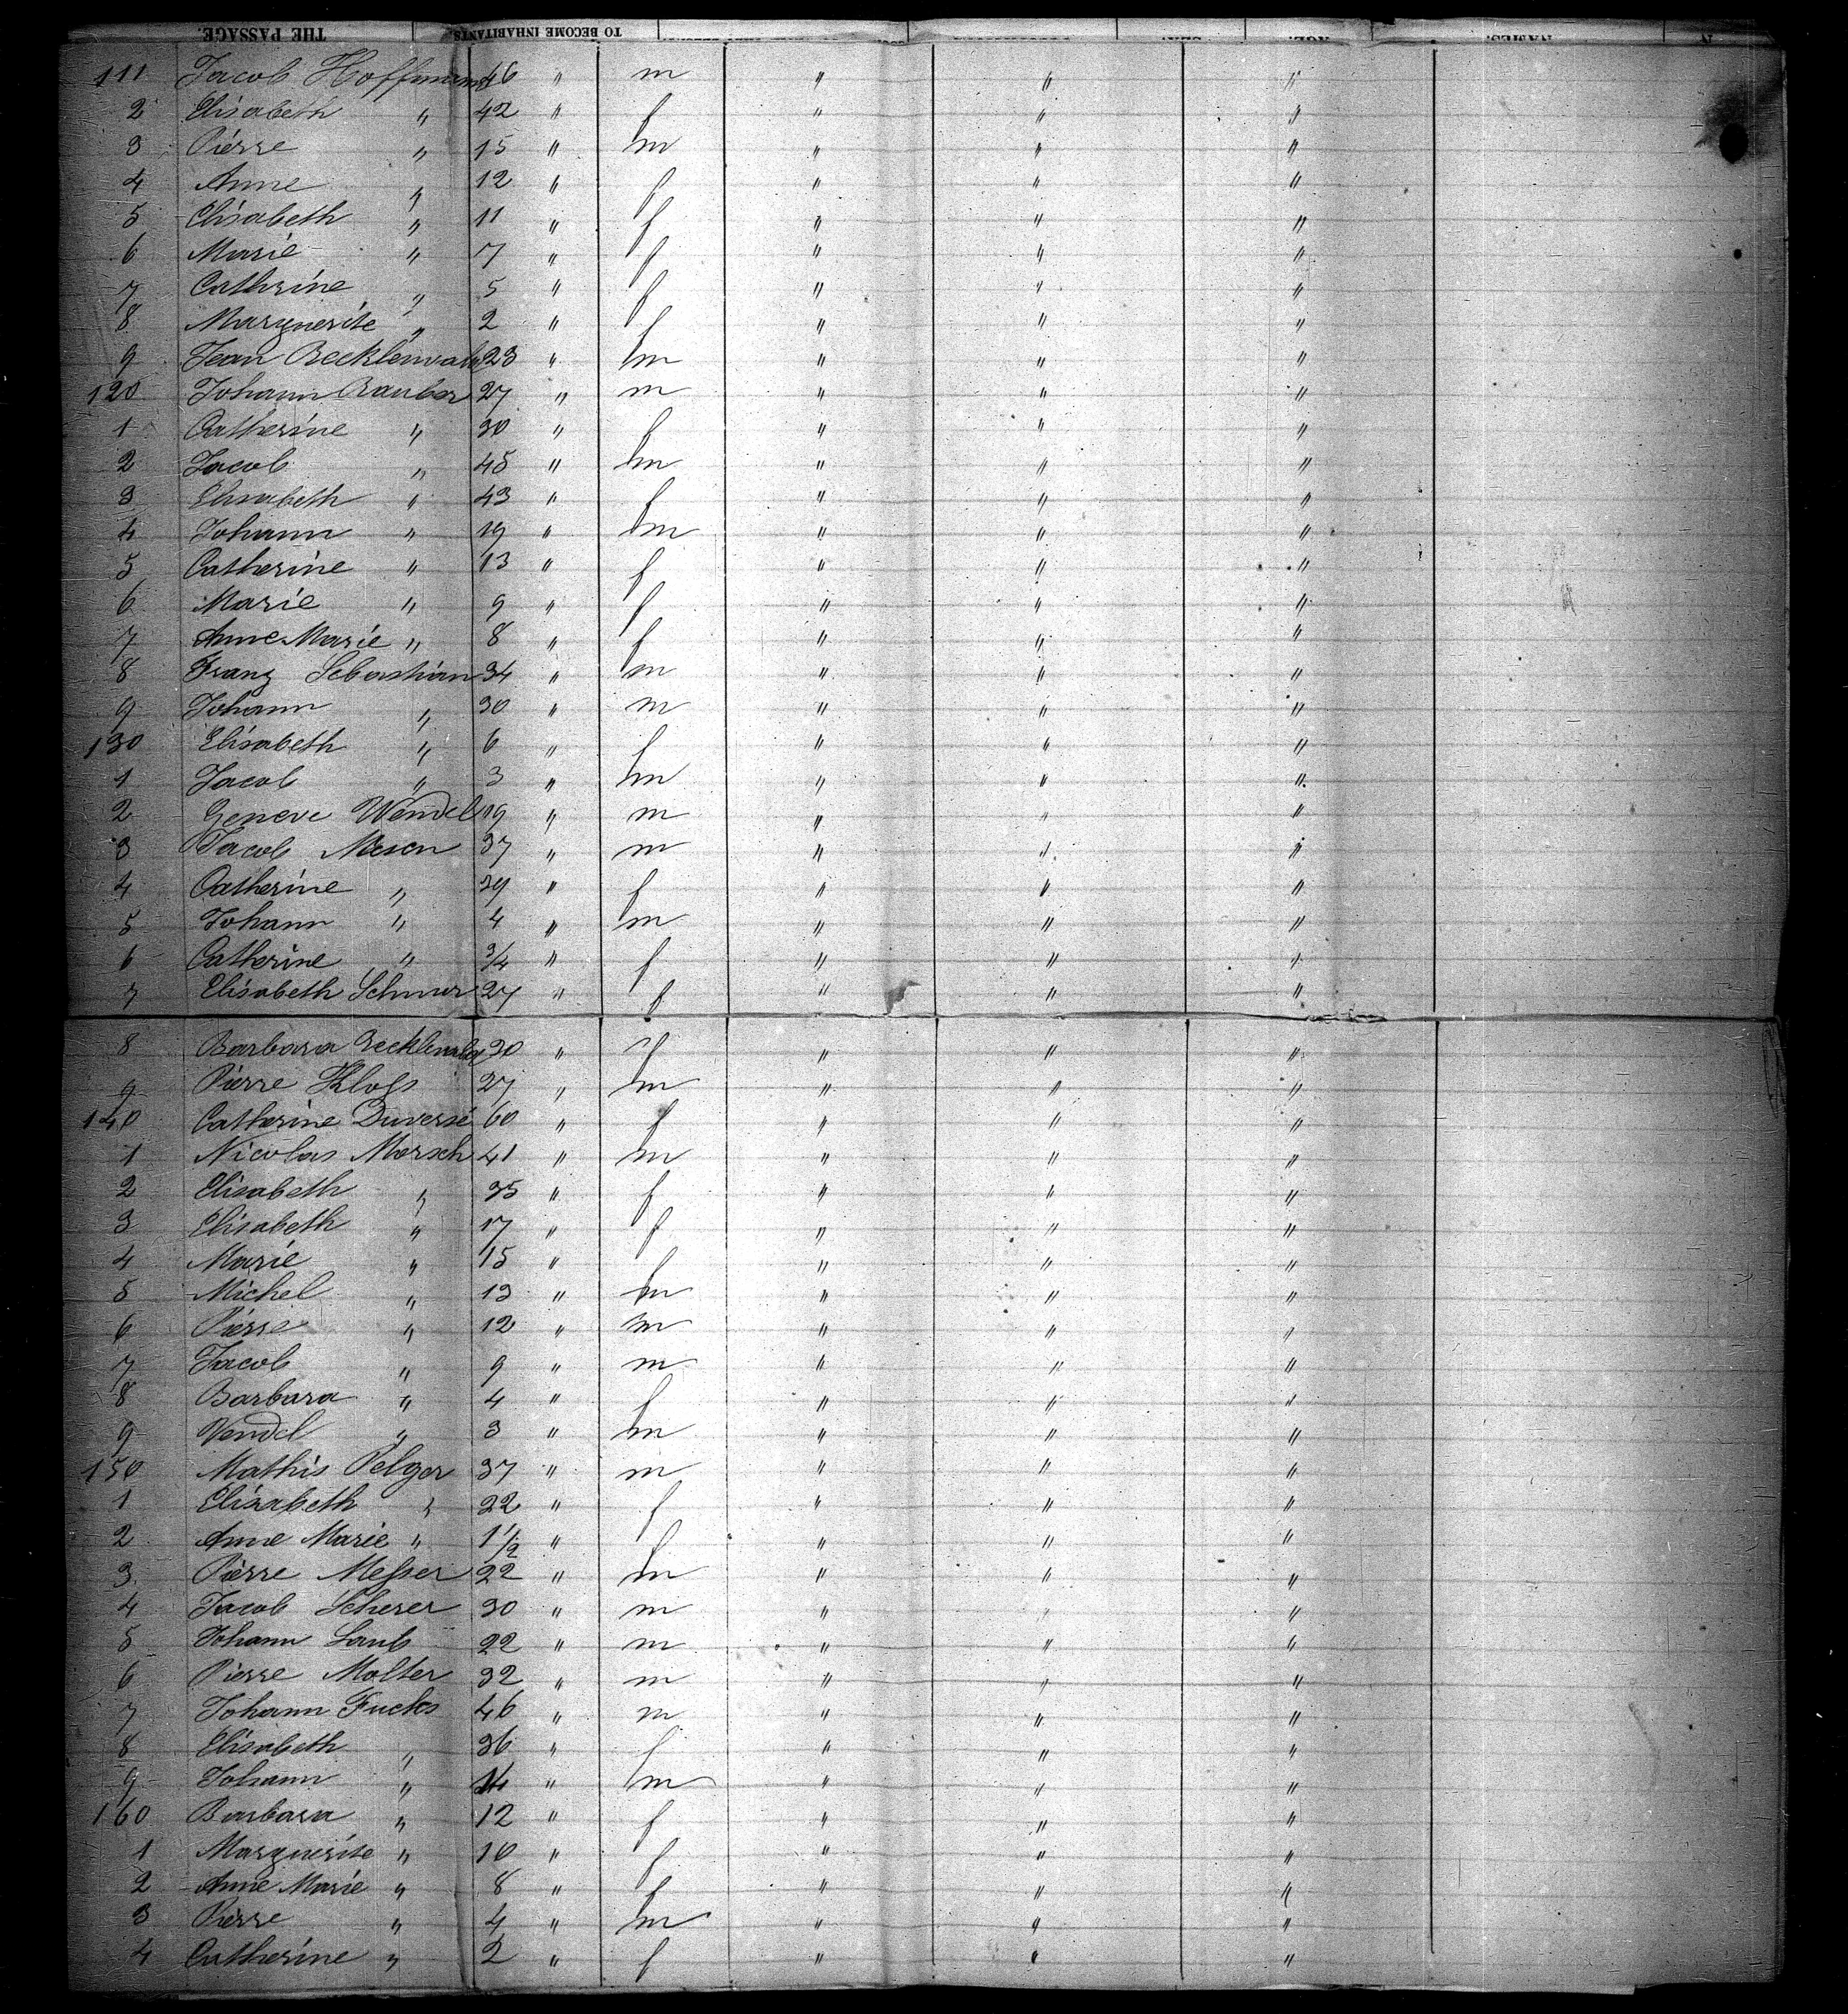 THE PASSAGE. TO BECOME INHABITANTS. SEX. AGE. NAMES.
111 Jacob Hoffmann 46 " m " " "
2 Elisabeth " 42 " f " " "
3 Pierre " 15 " m " " "
4 Anne " 12 " f " " "
5 Elisabeth " 11 " f " " "
6 Marie " 7 " f " " "
7 Cathrine " 5 " f " " "
8 Marguerite " 2 " f " " "
9 Jean 23 " m " " "
120 Johann Rauber 27 " m " " "
1 Catherine " 30 " f " " "
2 Jacob " 45 " m " " "
3 Elisabeth " 43 " f " " "
4 Johann " 19 " m " " "
5 Catherine " 13 " f " " "
6 Marie " 9 " f " " "
7 Anne Marie " 8 " f " " "
8 Franz Sebastian 34 " m " " "
9 Johann " 30 " m " " "
130 Elisabeth " 6 " f " " "
1 Jacob " 3 " m " " "
2 Geneve Wendel 19 " m " " "
3 Jacob 37 " m " " "
4 Catherine " 39 " f " " "
5 Johann " 4 " m " " "
6 Catherine " 3/4 " f " " "
7 Elisabeth Schnur 27 " f " " "
8 Barbara 30 " f " " "
9 Pierre Klos 27 " m " " "
140 Catherine Duversé 60 " f " " "
1 Nicolas Morsch 41 " m " " "
2 Elisabeth " 35 " f " " "
3 Elisabeth " 17 " f " " "
4 Marie " 15 " f " " "
5 Michel " 13 " m " " "
6 Pierre " 12 " m " " "
7 Jacob " 9 " m " " "
8 Barbara " 4 " f " " "
9 Vendel " 3 " m " " "
150 Mathis Pelger 37 " m " " "
1 Elisabeth " 22 " f " " "
2 Anne Marie " 1 1/2 " f " " "
3 Pierre Meßer 22 " m " " "
4 Jacob Scherer 30 " m " " "
5 Johann 22 " m " " "
6 Pierre Molter 32 " m " " "
7 Johann Fuchs 46 " m " " "
8 Elisabeth " 36 " f " " "
9 Johann " 14 " m " " "
160 Barbara " 12 " f " " "
1 Marguerite " 10 " f " " "
2 Anne Marie " 8 " f " " "
3 Pierre " 4 " m " " "
4 Catherine " 2 " f " " "